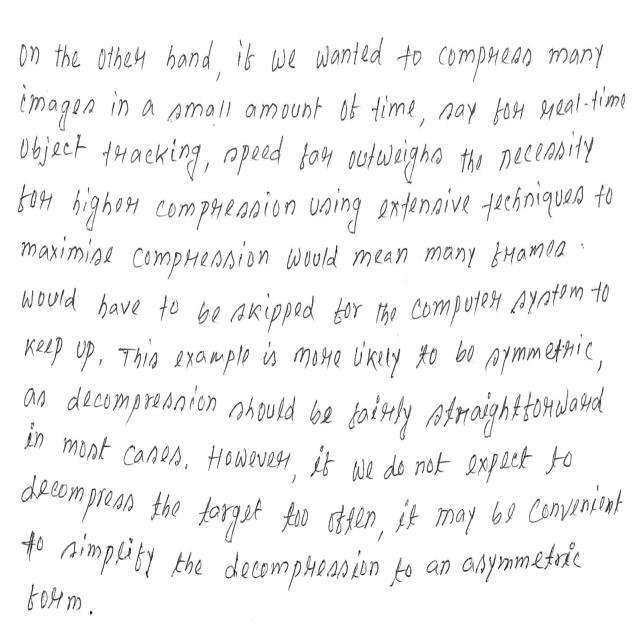 on the other hand, if we wanted to compress many
images in a small amount of time, say for real-time
object tracking, speed far outweighs the necessity
for higher compression using extensive techniques to
maximise compression would mean many frames
would have to be skipped for the computer system to
keep up. This example is more likely to be symmetric,
as decompression should be fairly straightforward
in most cases. However, if we do not expect to
decompress the target too often, it may be convenient
to simplify the decompression to an asymmetric
form.